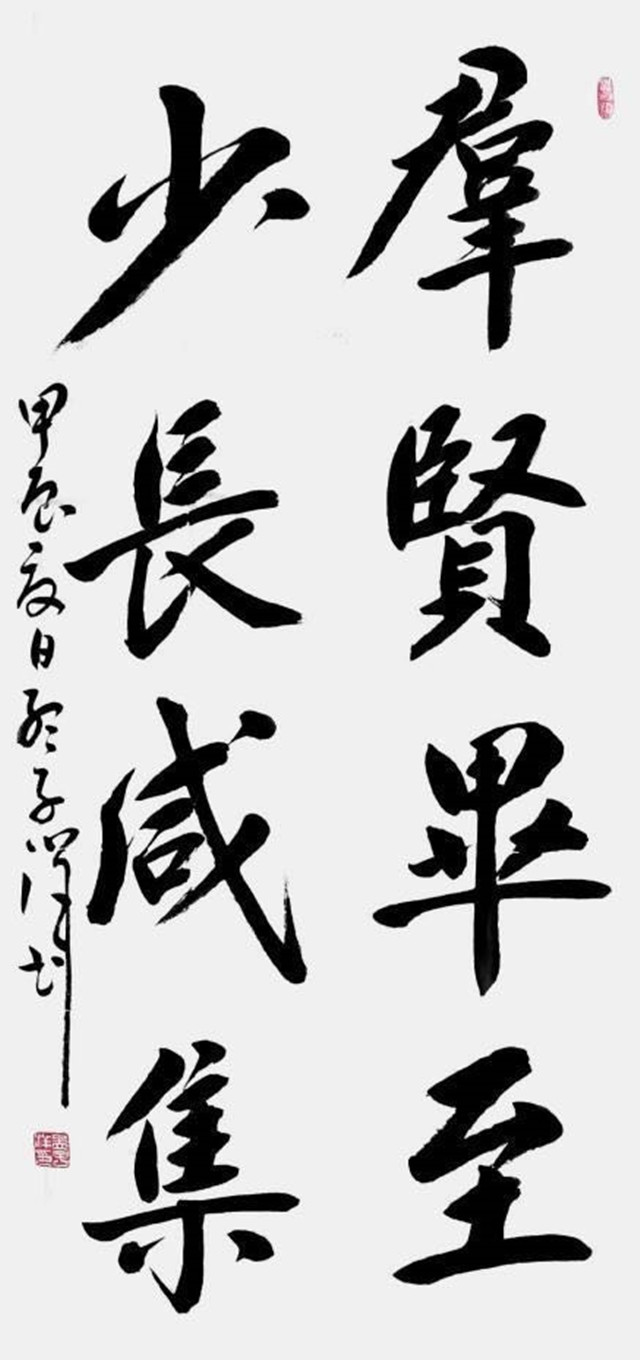 羣賢畢至
少長咸集
甲辰夏日